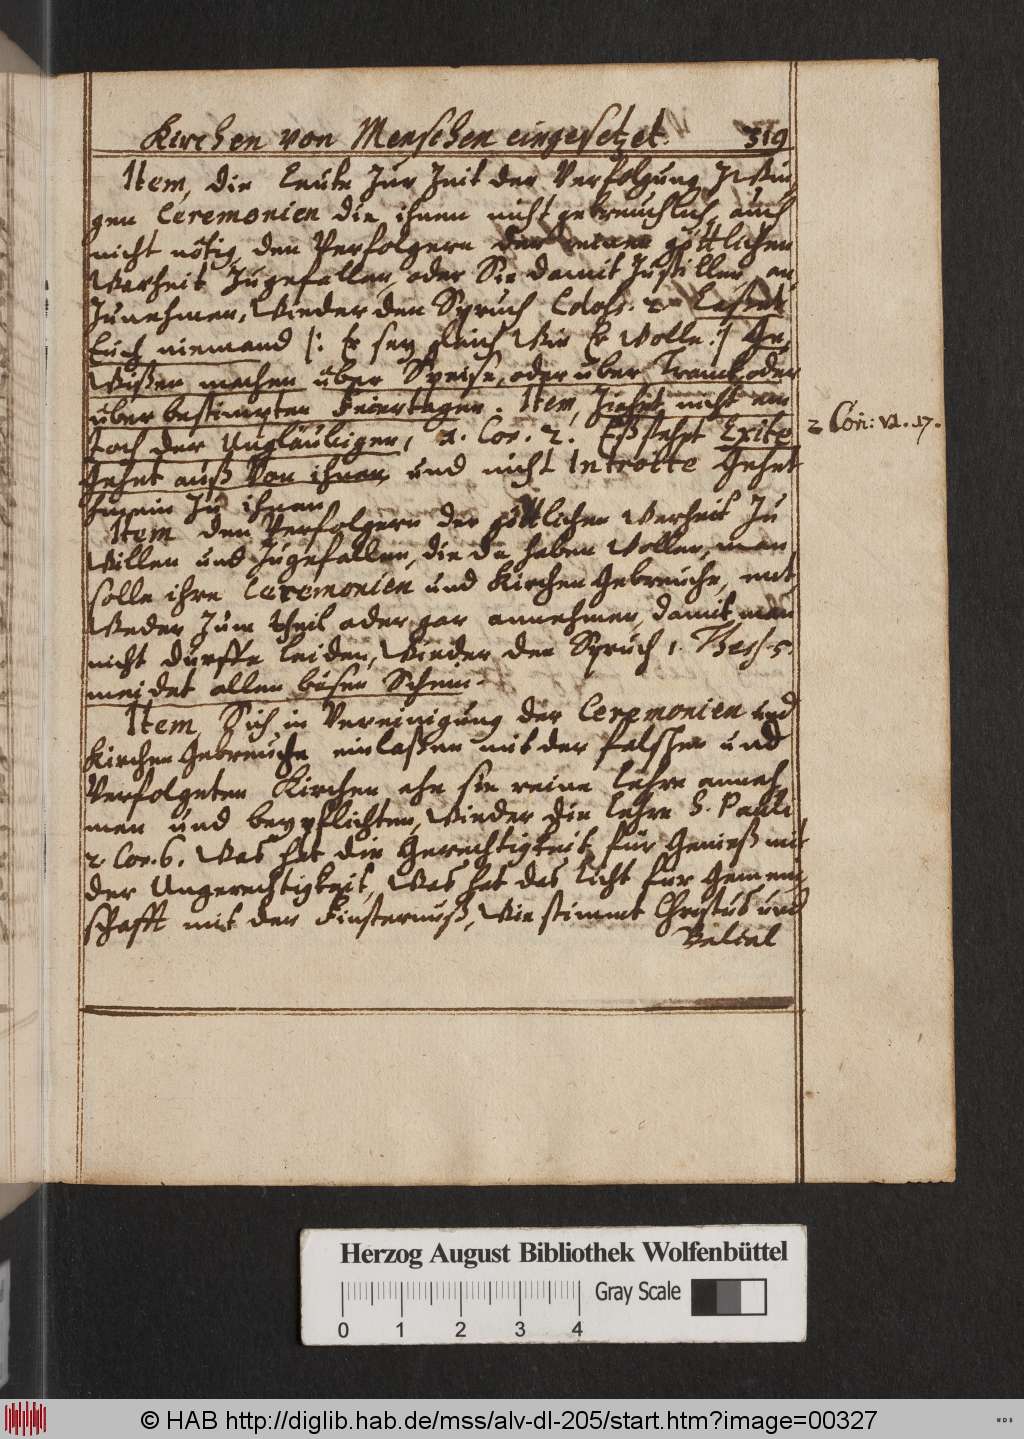 Kirchen von Menschen eingesetzet. 319
Item, die Leute zur Zeit der Verfolgung zwin
gen Ceremonien die ihnen nicht gebreuchlich, auch
nicht nötig, den Verfolgern der reinen göttlichen
Warheit zugefallen, oder Sie damit zustillen, an
zunehmen, Wieder den Spruch Coloss. 2. Laßet
Euch niemand /: Er sey gleich Wer Er Wolle :/ Ge,
Wißen machen über Speise, oder über Tranck, oder
über bestimpten Feiertagen. Item, Ziehet nicht am
Joch der Ungläubigen, 2. Cor. 2. Eß stehet Exite
2 Cor: VI. 17.
Gehet auß Von ihnen, und nicht Introite Gehet
hinein zu ihnen
Item den Verfolgern der göttlichen Warheit zu
Willen und zugefallen, die da haben Wollen, man
solle ihre Ceremonien und Kirchen Gebreuche, ent
Weder zum theil oder gar annehmen, damit man
nicht dürffe leiden, Wieder den Spruch 1. Thess. 5.
meidet allen bösen Schein.
Item, Sich in Vereinigung der Ceremonien und
Kirchen Gebreuche einlaßen mit der falschen und
Verfolgeten Kirchen ehe sie reine Lehre anneh,
men und beypflichten, Wieder die Lehre S. Pauli
2 Cor. 6. Was hat die Gerechtigkeit für Genieß mit
der Ungerechtigkeit, Was hat das Licht für Gemein
schafft mit der Finsternuß, Wie stimmt Christus und
Belial
Herzog August Bibliothek Wolfenbüttel
Gray Scale
0 1 2 3 4
© HAB http://diglib.hab.de/mss/alv-dl-205/start.htm?image=00327